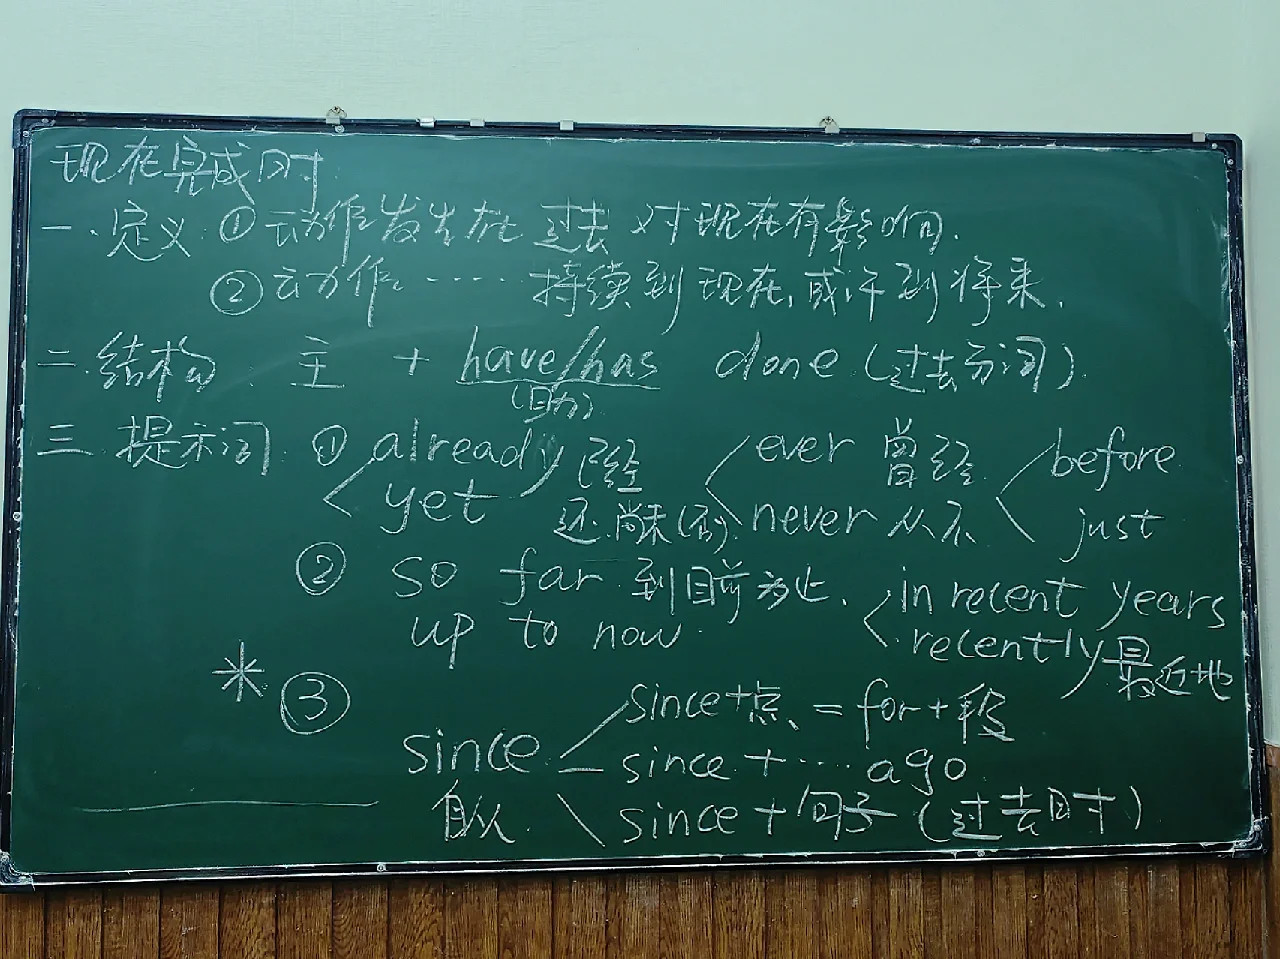 现在完成时
一.定义:①动作发生在过去对现在有影响.
②动作……持续到现在,或许到将来.
二.结构. 主 + have/has done (过去分词).
(助)
三.提示词 ① already 已经 ever 曾经 before
yet 还.尚未(否) never 从不 just
② so far 到目前为止. in recent years
up to now. recently 最近地
* ③ since+点、= for+段
since since+····ago
自从 since+句子(过去时)